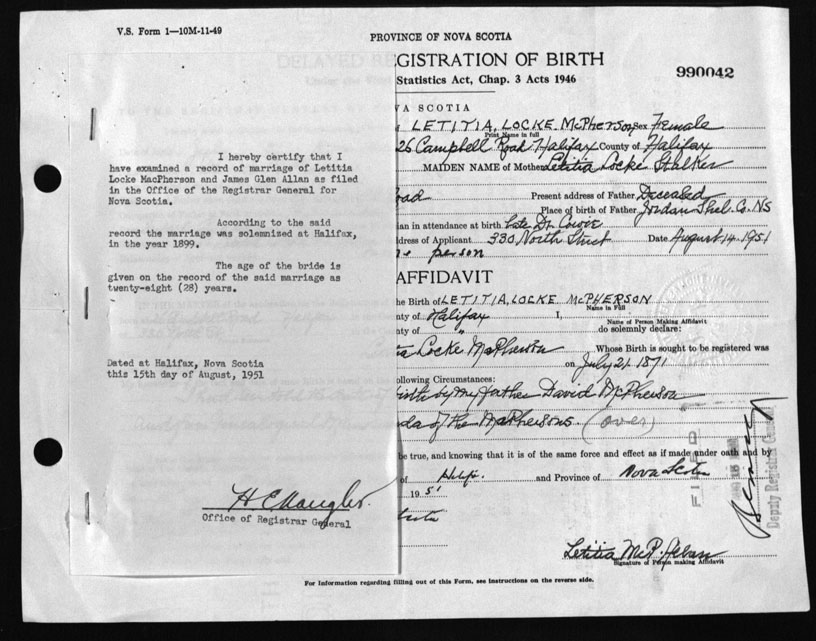 V.S. Form 1—10M-11-49
PROVINCE OF NOVA SCOTIA
DELAYED REGISTRATION OF BIRTH
Statistics Act, Chap. 3 Acts 1946
990042
VA SCOTIA
LETITIA, LOCKE. McPherson Sex Female
Print Name in full
26 Campbell Road Halifax County of Halifax
MAIDEN NAME of Mother Letitia Locke Stalker
oad Present address of Father Deceased
Place of birth of Father Jordan Shel. Co. NS
ian in attendance at birth Late Dr. Cowie
ddress of Applicant 530 North Street Date August 14. 1951
person
I hereby certify that I
have examined a record of marriage of Letitia
Locke MacPherson and James Glen Allan as filed
in the Office of the Registrar General for
Nova Scotia.
According to the said
record the marriage was solemnized at Halifax,
in the year 1899.
The age of the bride is
given on the record of the said marriage as
twenty-eight (28) years.
Dated at Halifax, Nova Scotia
this 15th day of August, 1951
Office of Registrar General
AFFIDAVIT
he Birth of LETITIA, LOCKE McPHERSON
Name in Full
nty of Halifax I,
Name of Person Making Affidavit
nty of " do solemnly declare:
tia Locke McPherson Whose Birth is sought to be registered was
on July 21. 1871
ollowing Circumstances:
birth by my father David McPherson
of the McPhersons. (over)
be true, and knowing that it is of the same force and effect as if made under oath and by
of Hfx. and Province of Nova Scotia
1951
FILED
Deputy Registrar General
Letitia McP. Allan
Signature of Person making Affidavit
For Information regarding filling out of this Form, see Instructions on the reverse side.